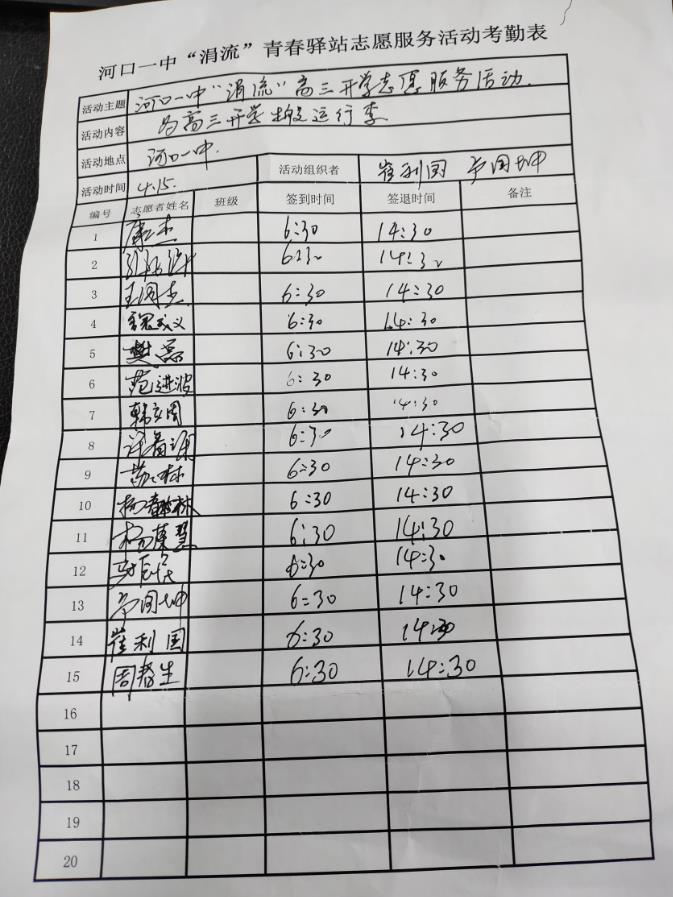 河口一中“涓流”青春驿站志愿服务活动考勤表
活动主题 河口一中“涓流”高三开学志愿服务活动.
活动内容 为高三开学搬运行李
活动地点 河口一中. 活动组织者 崔利国
活动时间 4.15.
编号 志愿者姓名 班级 签到时间 签退时间 备注
1 康杰 6:30 14:30
2 6:30 14:30
3 王同杰 6:30 14:30
4 魏武义 6:30 14:30
5 樊磊 6:30 14:30
6 范进波 6:30 14:30
7 韩文周 6:30 14:30
8 6:30 14:30
9 6:30 14:30
10 杨春林 6:30 14:30
11 杨荣慧 6:30 14:30
12 6:30 14:30
13 6:30 14:30
14 崔利国 6:30 14:30
15 周春生 6:30 14:30
16
17
18
19
20